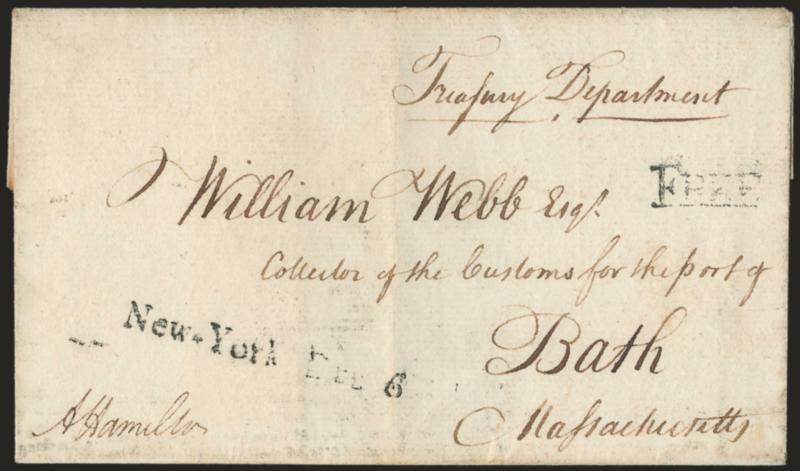 Treasury Department
FREE
William Webb Esqr.
Collector of the Customs for the port of
New-York 6
Bath
A Hamilton
Massachusetts